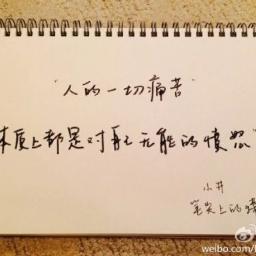 "人的一切痛苦
本质上都是对自己无能的愤怒"
小井
笔尖上的
weibo.com/